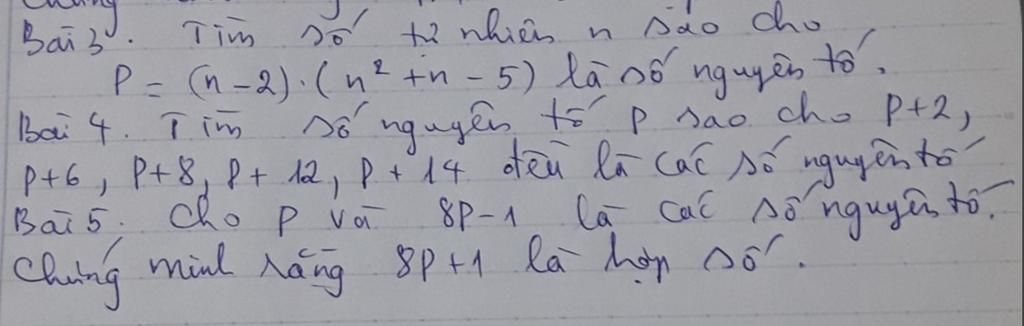 Bài 3. Tìm số tự nhiên n sao cho
P = (n-2).(n² + n - 5) là số nguyên tố.
Bài 4. Tìm số nguyên tố p sao cho p+2,
p+6, p+8, p+12, p+14 đều là các số nguyên tố
Bài 5. Cho p và 8p-1 là các số nguyên tố.
Chứng minh rằng 8p+1 là hợp số.